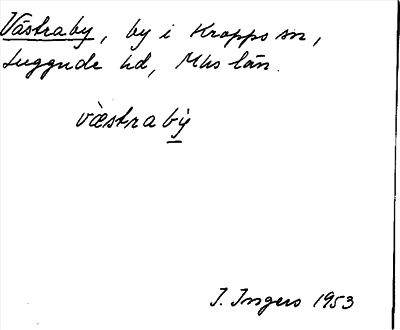 Västraby, by i Kropps sn,
Luggude hd, Mhs län.
væ̀straby�̀
I. Ingers 1953